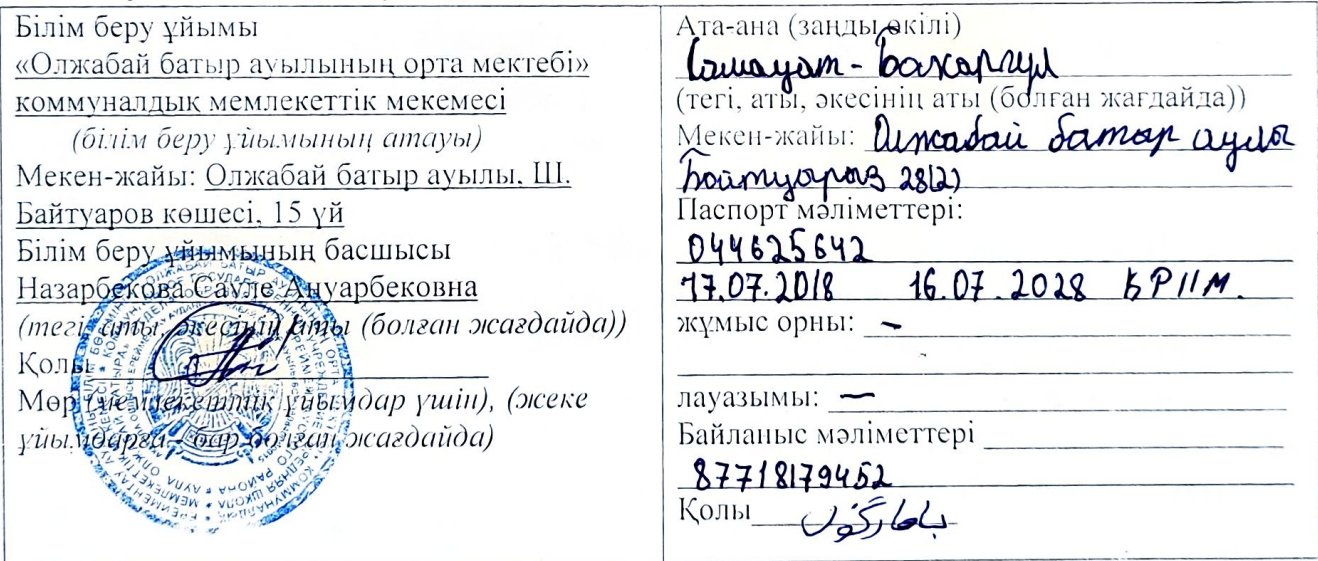 Білім беру ұйымы
«Олжабай батыр ауылының орта мектебі»
коммуналдық мемлекеттік мекемесі
(білім беру ұйымының атауы)
Мекен-жайы: Олжабай батыр ауылы, Ш.
Байтуаров көшесі, 15 үй
Білім беру ұйымының басшысы
Назарбекова Сауле Ануарбековна
(тегі, аты, әкесінің аты (болған жағдайда))
Қолы
Мөр (мемлекеттік ұйымдар үшін), (жеке
ұйымдарға - бар болған жағдайда)
Ата-ана (заңды өкілі)
Самауат - Бахаргүл
(тегі, аты, әкесінің аты (болған жағдайда))
Мекен-жайы: Олжабай батыр ауылы
28(2)
Паспорт мәліметтері:
044625642
17.07.2018 16.07.2028 ҚР ІІМ.
жұмыс орны: –
лауазымы: –
Байланыс мәліметтері
87718179452
Қолы باھارگۇل